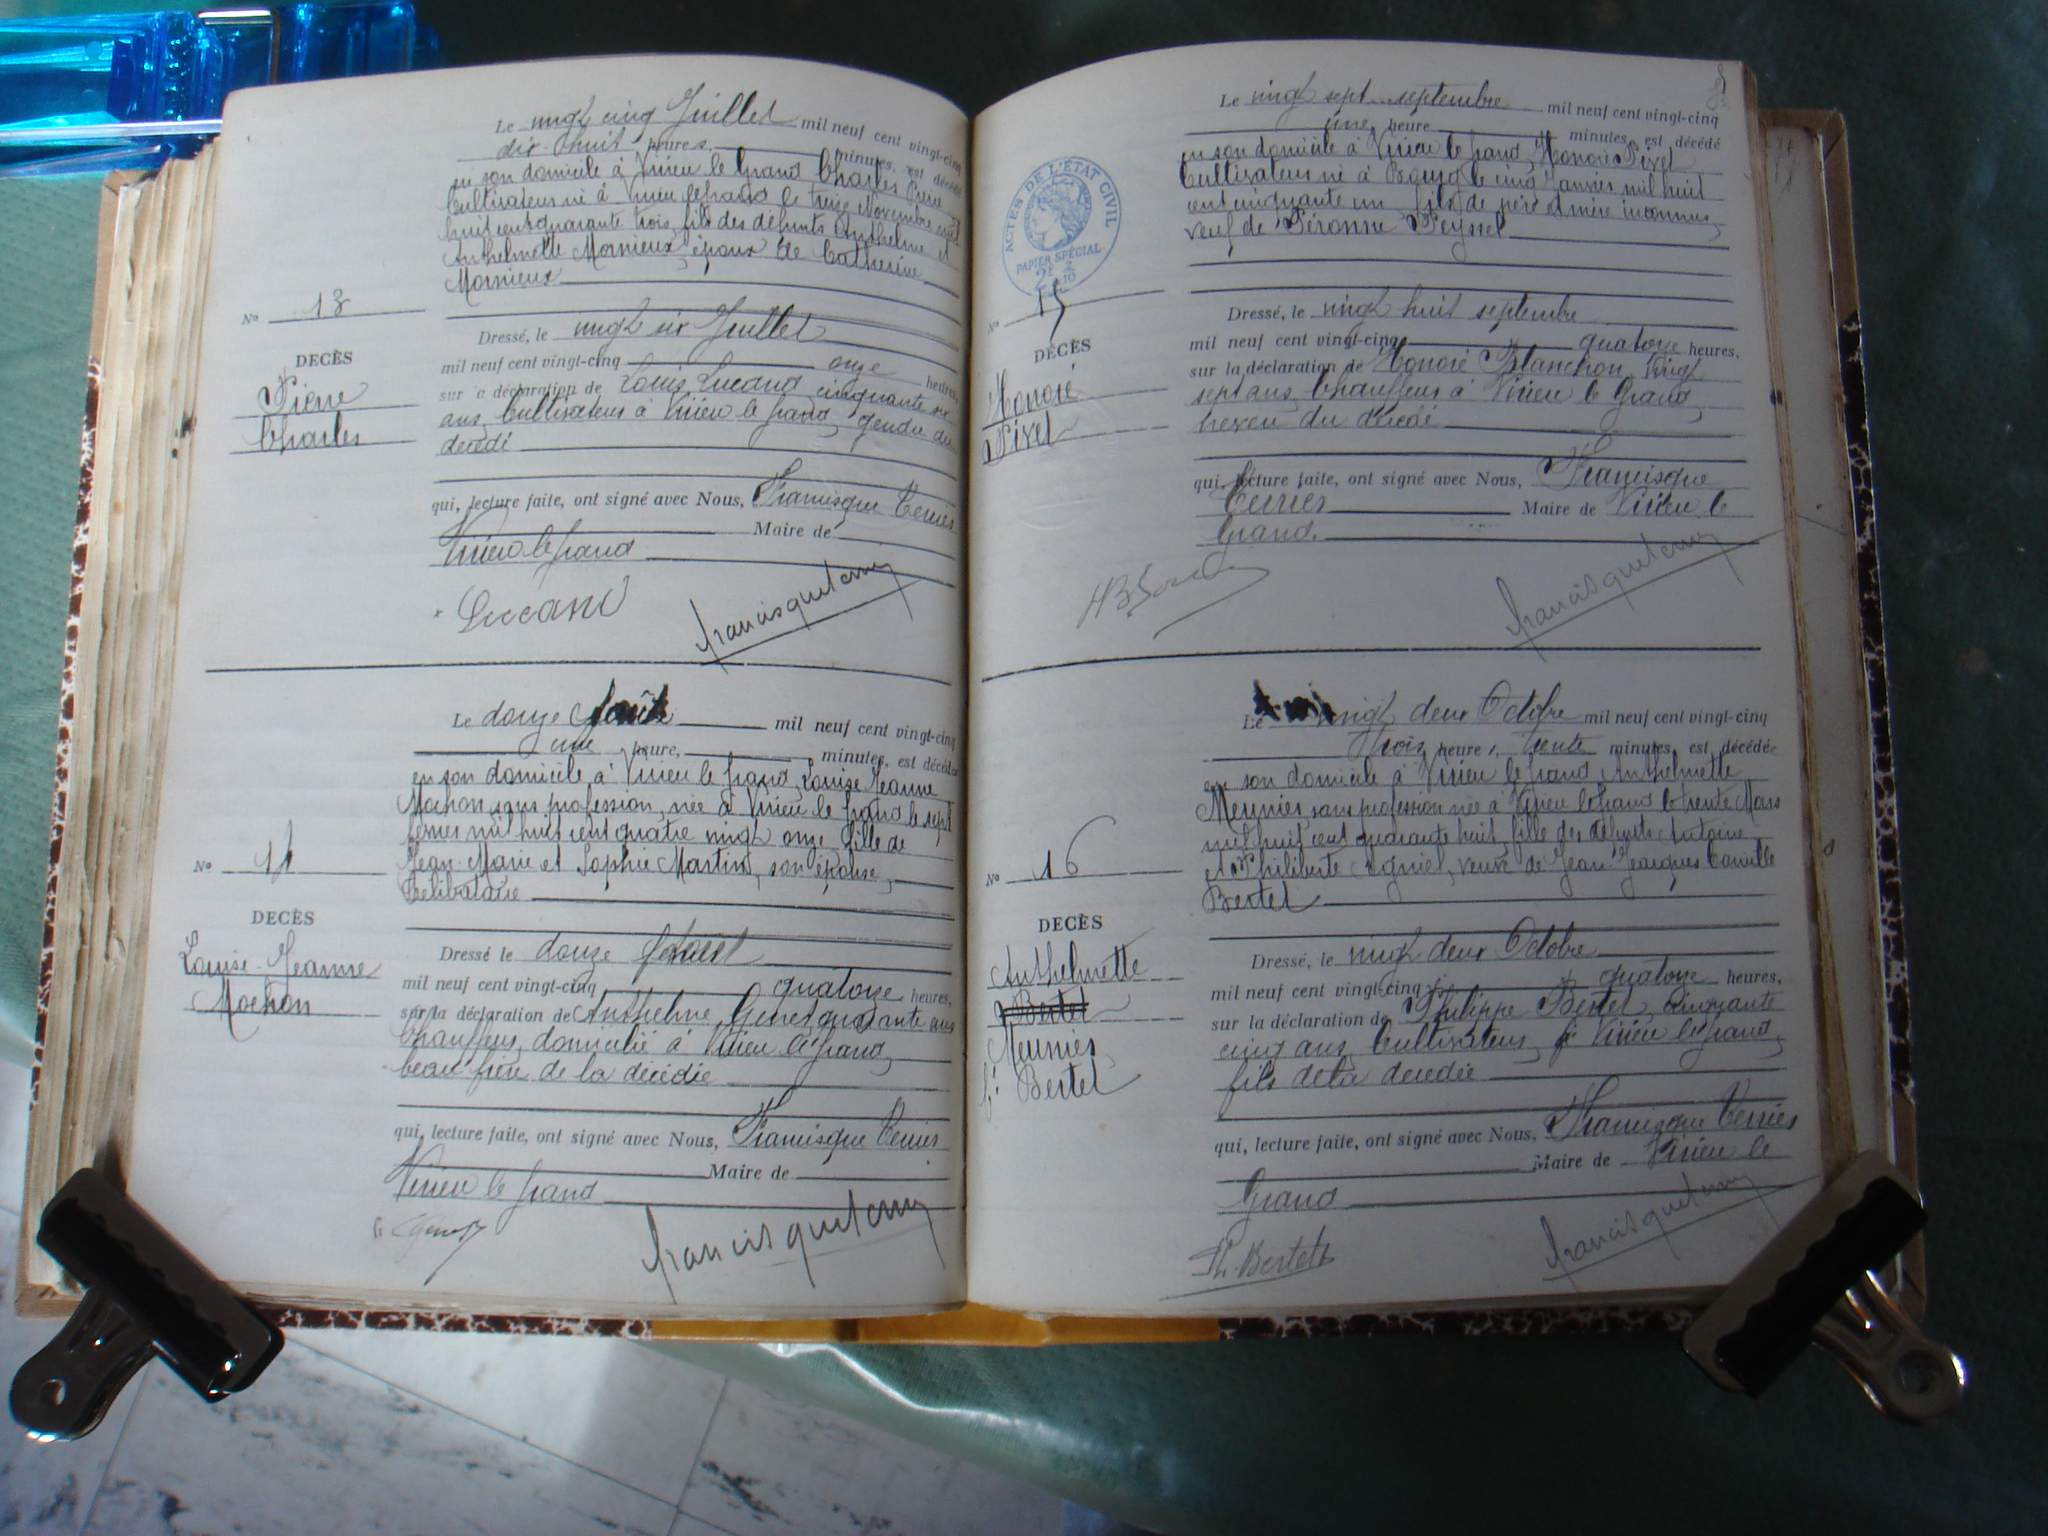 Le vingt cinq Juillet mil neuf cent vingt-cinq
dix huit heures, minutes, est décédé
en son domicile à Virieu le Grand Charles Pierre
Cultivateur né à Virieu le grand le treize Novembre mil
huit cent quarante trois, fils des défunts Anthelme et
Anthelmette Mornieux, époux de Catherine
Mornieux
No 13
DECÈS
Pierre
Charles
Dressé, le vingt six Juillet
mil neuf cent vingt-cinq onze heures,
sur la déclaration de Louis Lucand cinquante six
ans, Cultivateur à Virieu le grand, gendre du
décédé
qui, lecture faite, ont signé avec Nous, Francisque Terrier
Maire de
Virieu le grand
Lucand
francisque terrier
Le douze Août mil neuf cent vingt-cinq
une heure, minutes, est décédée
en son domicile à Virieu le grand, Louise Jeanne
Mochon, sans profession, née à Virieu le grand le sept
mil huit cent quatre vingt onze fille de
Jean-Marie et Sophie Martin, son épouse,
Célibataire
No 14
DECÈS
Louise-Jeanne
Mochon
Dressé le douze Août
mil neuf cent vingt-cinq quatorze heures,
sur la déclaration de Anthelme Genet quarante ans
Chauffeur, domicilié à Virieu le grand,
beau frère de la décédée
qui, lecture faite, ont signé avec Nous, Francisque Terrier
Maire de
Virieu le grand
francisque terrier
Le vingt sept septembre mil neuf cent vingt-cinq
une heure minutes, est décédé
en son domicile à Virieu le grand, Honoré Pivel
Cultivateur né à le cinq Janvier mil huit
cent cinquante un fils de père et mère inconnus,
veuf de Péronne Peyssel
ACTES DE L'ÉTAT CIVIL
PAPIER SPÉCIAL
No 15
DÉCÈS
Honoré
Pivel
Dressé, le vingt huit septembre
mil neuf cent vingt-cinq quatorze heures,
sur la déclaration de Honoré Blanchon, vingt
sept ans, Chauffeur à Virieu le Grand,
neveu du décédé
qui, lecture faite, ont signé avec Nous, Francisque
Terrier Maire de Virieu le
Grand.
francisque terrier
Le vingt deux Octobre mil neuf cent vingt-cinq
trois heures, trente minutes, est décédée
en son domicile à Virieu le grand Anthelmette
Meunier, sans profession née à Virieu le grand le trente Mars
mil huit cent quarante huit, fille des défunts Antoine
et Philiberte Agniel, veuve de Jean Jacques Camille
Bertet
No 16
DECÈS
Anthelmette
Bertet
Meunier
f. Bertet
Dressé, le vingt deux Octobre
mil neuf cent vingt-cinq quatorze heures,
sur la déclaration de Philippe Bertet, cinquante
cinq ans, Cultivateur, à Virieu le grand,
fils de la décédée
qui, lecture faite, ont signé avec Nous, Francisque Terrier
Maire de Virieu le
Grand
Ph. Bertet
francisque terrier